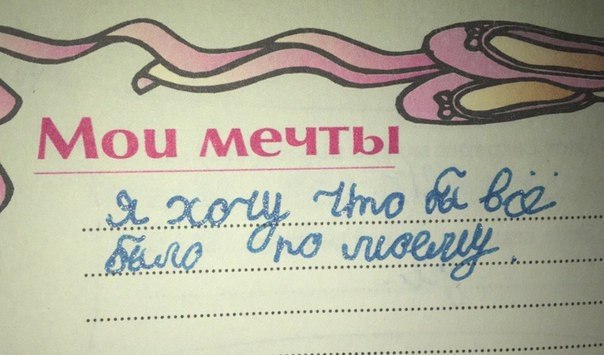 Мои мечты
я хочу что бы всё
было по моему.